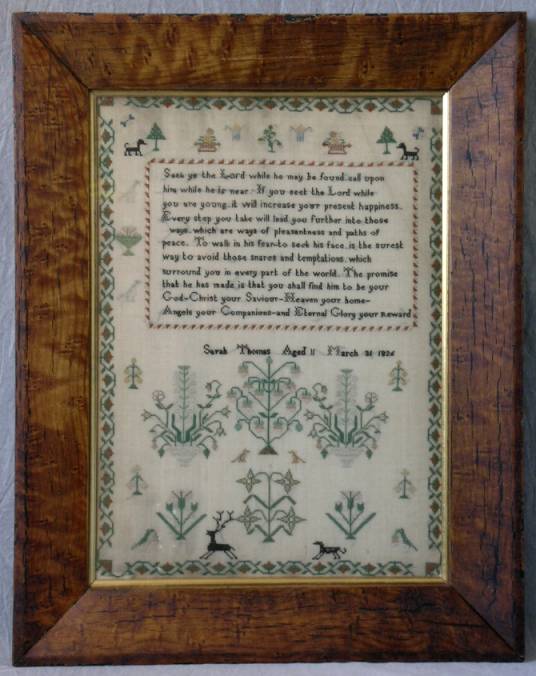 Seek ye the Lord while he may be found. call upon
him while he is near. If you seek the Lord while
you are young. it will increase your present happiness.
Every step you take will lead you further into those
ways. which are ways of pleasantness and paths of
peace. To walk in his fear-to seek his face. is the surest
way to avoid those snares and temptations. which
surround you in every part of the world. The promise
that he has made is that you shall find him to be your
God-Christ your Saviour-Heaven your home-
Angels your Companions-and Eternal Glory your Reward
Sarah Thomas Aged 11 March 31 1826